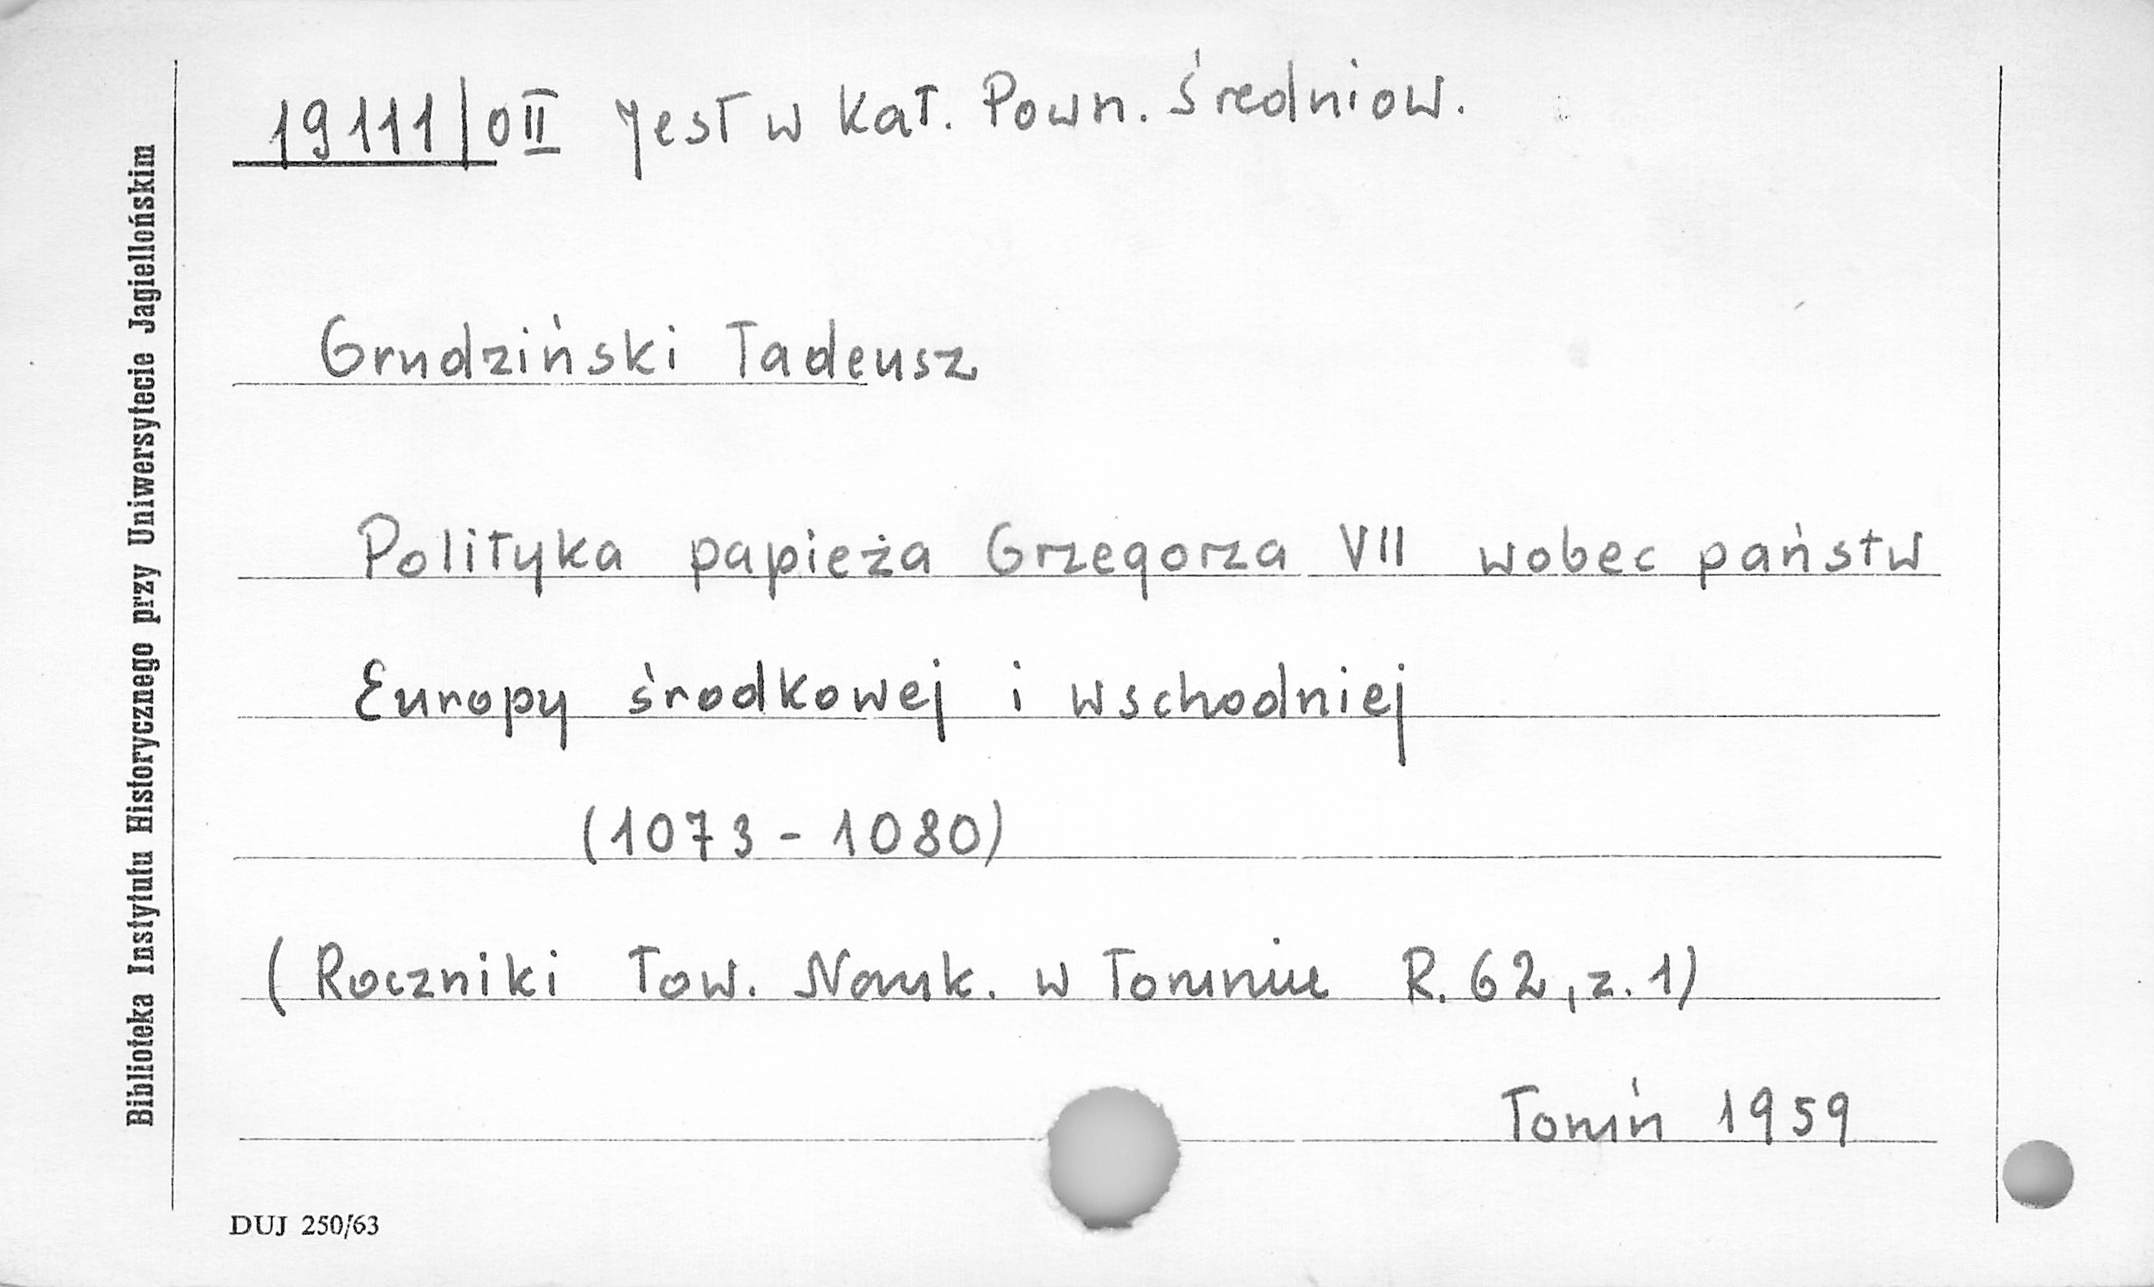 19111/0II Jest w Kat. Powsz. Średniow.
Grudziński Tadeusz
Polityka papieża Grzegorza VII wobec państw
Europy środkowej i wschodniej
(1073 - 1080)
(Roczniki Tow. Nauk. w Toruniu R. 62, z. 1)
Toruń 1959
DUJ 250/63
Biblioteka Instytutu Historycznego przy Uniwersytecie Jagiellońskim